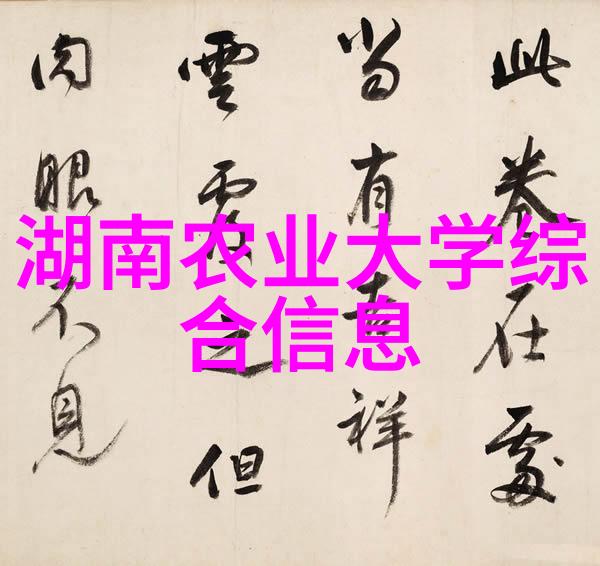 湖南农业大学综
合信息
此卷在處
当有吉祥
雲覆之但
肉眼不見